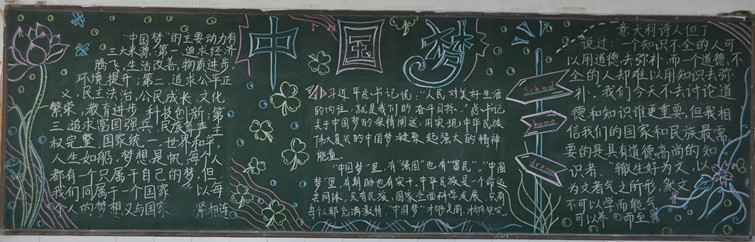 中国梦
"中国梦"的主要动力有
三大来源:第一,追求经济
腾飞,生活改善,物质进步
环境提升;第二,追求公平正
义,民主法治,公民成长,文化
繁荣,教育进步,科技创新;第
三,追求富国强兵,民族尊严,主
权完整,国家统一,世界和平。
人生如船,梦想是帆,每个人
都有一个只属于自己的梦,但
我们同属于一个国家,以每
个人的梦想又与国家
紧相连
习近平总书记说:"人民对美好生活
的向往,就是我们的奋斗目标。"总书记
关于中国梦的深情阐述,用实现中华民族
伟大复兴的中国梦凝聚起强大的精神
能量。
"中国梦"里,有"强国"也有"富民"。"中国
梦"里,有期盼也有实干。中华民族是一个命运
共同体,只有民族、国家全面科学发展,只有
School
home
dream
意大利诗人但丁
说过:"一个知识不全的人可
以用道德去弥补,而一个道德不
全的人却难以用知识去弥
补。"我们今天不去讨论道
德和知识谁更重要,但我相
信我们的国家和民族最需
要的是具有道德高尚的知
识者。"做人好为文,以
为文者气之所形,然文
不可以学而能,气
可以养而至